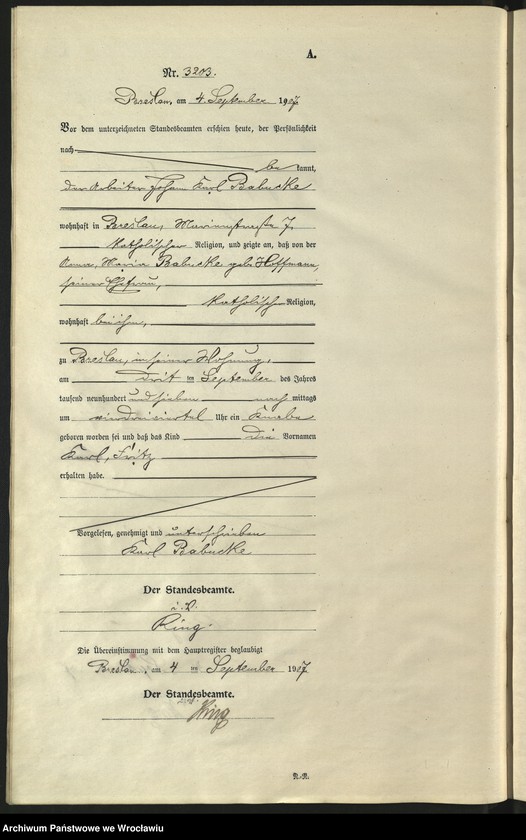 A.
Nr. 3203.
Breslau, am 4. September 1907
Vor dem unterzeichneten Standesbeamten erschien heute, der Persönlichkeit
nach
bekannt,
der Arbeiter Johann Karl Babucke
wohnhaft in Breslau, Marienstraße 7,
katholischer Religion, und zeigte an, daß von der
Anna, Maria Babucke geb. Hoffmann,
seiner Ehefrau,
katholischer Religion,
wohnhaft bei ihm,
zu Breslau, in seiner Wohnung,
am drit ten September des Jahres
tausend neunhundert und sieben nach mittags
um dreiviertel Uhr ein Knabe
geboren worden sei und daß das Kind die Vornamen
Karl, Fritz
erhalten habe.
Vorgelesen, genehmigt und unterschrieben
Karl Babucke
Der Standesbeamte.
i. V.
Ring.
Die Übereinstimmung mit dem Hauptregister beglaubigt
Breslau, am 4 ten September 1907
Der Standesbeamte.
Ring
R.-R.
Archiwum Państwowe we Wrocławiu